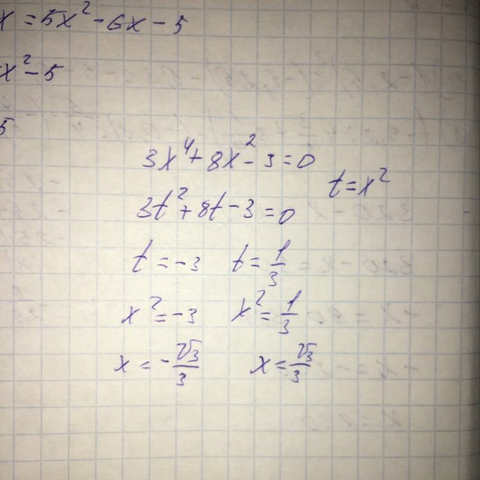 x = 5x² - 6x - 5
x² - 5
5
3x⁴ + 8x² - 3 = 0
t = x²
3t² + 8t - 3 = 0
t = -3 t = 1/3
x² = -3 x² = 1/3
x = -√3/3 x = √3/3